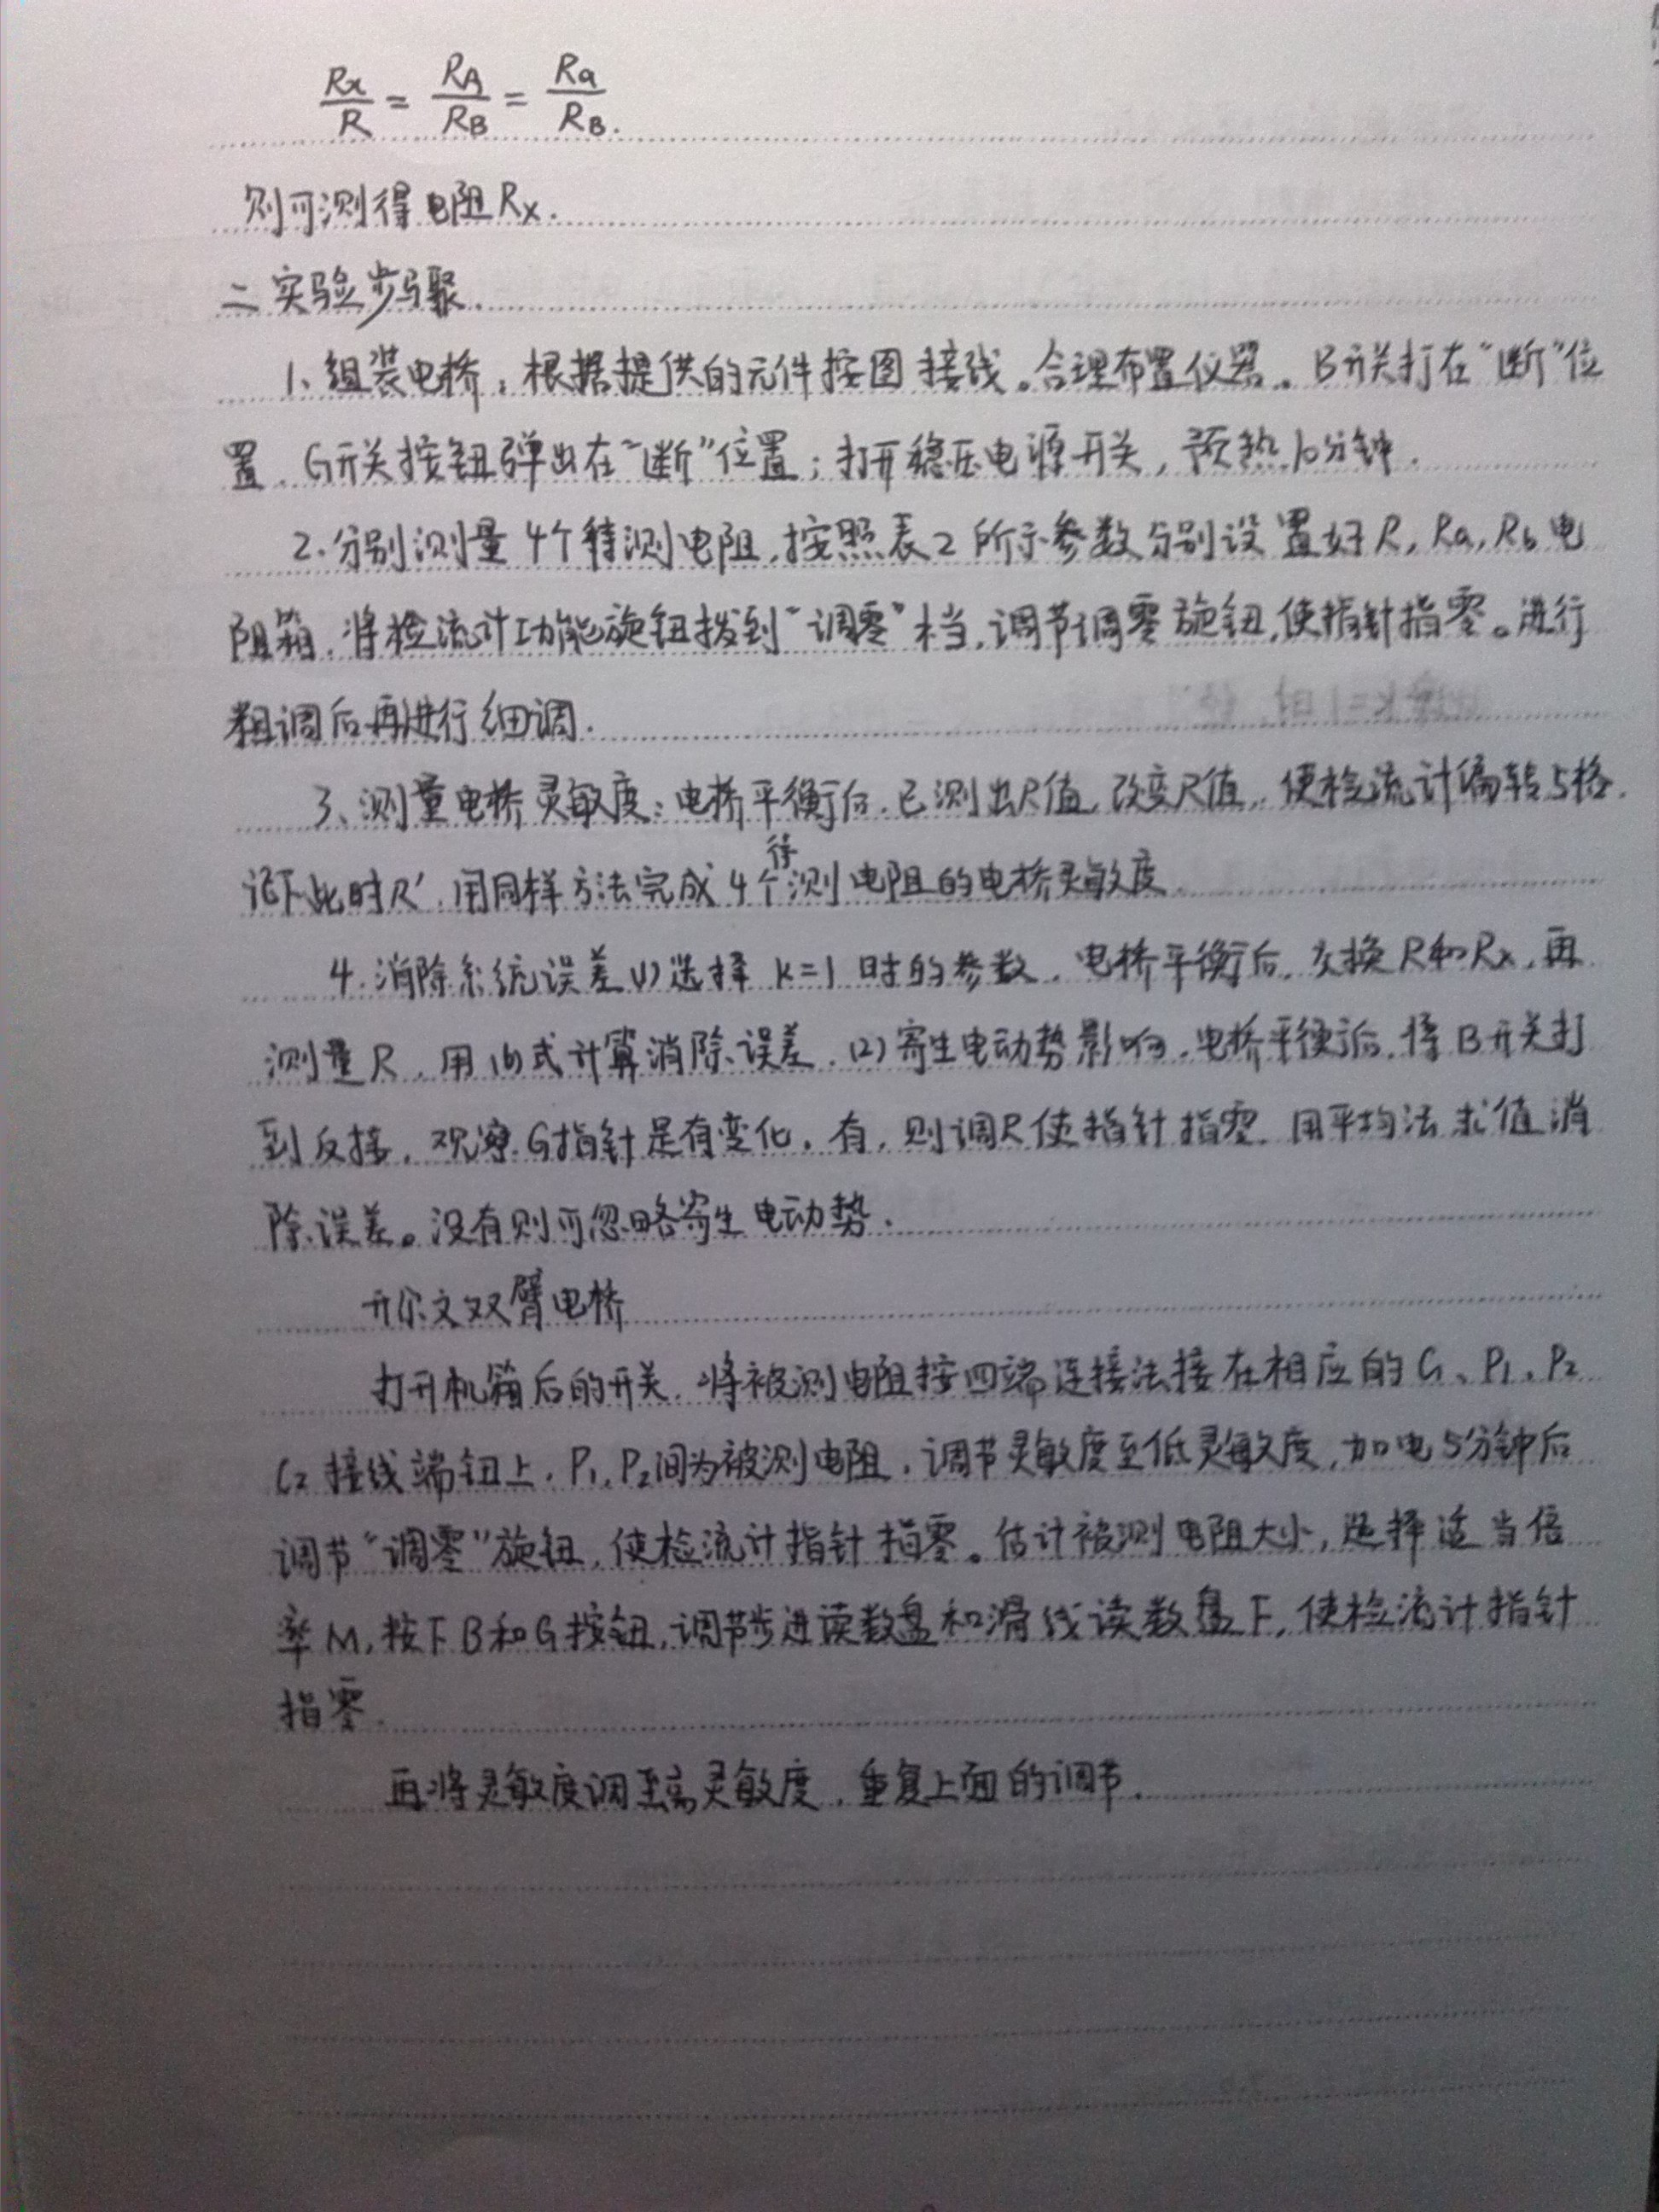 Rx/R = RA/RB = Ra/RB.
则可测得电阻Rx.
二 实验步骤.
1、组装电桥：根据提供的元件按图接线。合理布置仪器。B开关打在“断”位
置、G开关按钮弹出在“断”位置；打开稳压电源开关，预热10分钟.
2.分别测量4个待测电阻,按照表2所示参数分别设置好R,Ra,Rb电
阻箱.将检流计功能旋钮拨到“调零”档,调节调零旋钮,使指针指零。进行
粗调后再进行细调.
3、测量电桥灵敏度：电桥平衡后,已测出R值,改变R值,使检流计偏转5格.
记下此时R′.用同样方法完成4个待测电阻的电桥灵敏度.
4.消除系统误差(1)选择k=1时的参数.电桥平衡后,交换R和Rx,再
测量R.用(6)式计算消除误差.(2)寄生电动势影响.电桥平衡后.将B开关打
到反接.观察G指针是有变化.有,则调R使指针指零.用平均法求值消
除误差。没有则可忽略寄生电动势.
开尔文双臂电桥
打开机箱后的开关.将被测电阻按四端连接法接在相应的C1、P1、P2
C2接线端钮上.P1,P2间为被测电阻.调节灵敏度至低灵敏度,加电5分钟后
调节“调零”旋钮,使检流计指针指零。估计被测电阻大小,选择适当倍
率M,按下B和G按钮,调节步进读数盘和滑线读数盘下,使检流计指针
指零.
再将灵敏度调至高灵敏度.重复上面的调节.